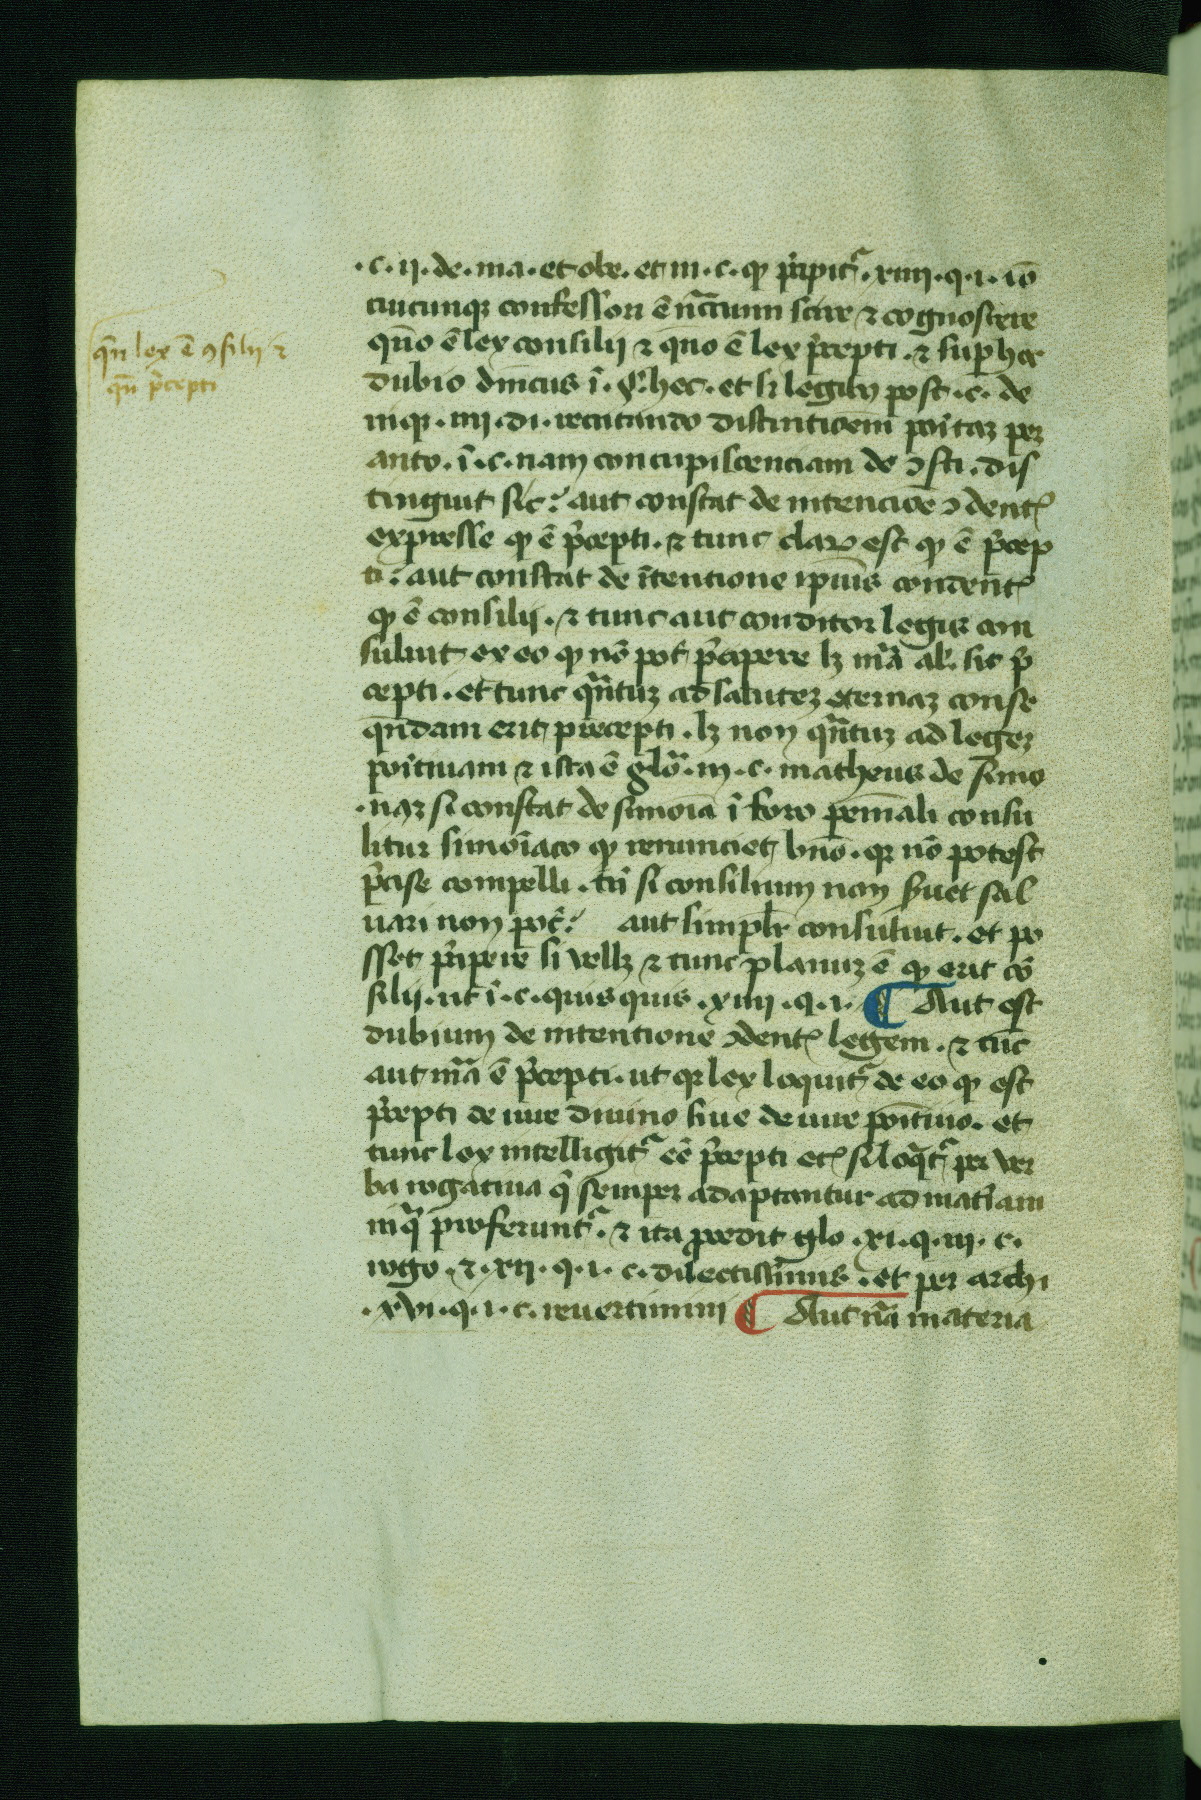 qn̄ lex ē ꝯsilij ⁊
qn̄ p̄cepti
·c·ij·de·ma·et obe·et in·c·ꝙ p̄cipitᷣ·xiiij·q·i·iō
cuicunqꝫ confessori ē nc̄c̄ium scire ⁊ cognoscere
qn̄o ē lex consilij ⁊ qn̄o ē lex p̄cepti·⁊ sup hoc
dubio dn̄icus ī·§·hec·et si legibꝫ post·c·de
niqꝫ·iiij·di·recitando distinctioēm poītaꝫ per
anto·ī·c·nam concupiscenciam de ꝯsti·dis
tinguit sic: aut constat de intencioē ꝯdentꝭ
expresse ꝙ ē p̄cepti·⁊ tunc claꝝ est ꝙ ē p̄cep
ti: aut constat de ītentione ipīus condentꝭ
ꝙ ē consilij·⁊ tunc aut conditor legis con
suluit ex eo ꝙ nō pot̄ p̄cipere lꝫ mr̄ā al̄ sit p̄
cepti·et tunc qn̄tuꝫ ad saluteꝫ eternaꝫ conse
quēdam erit precepti·lꝫ non qn̄tuꝫ ad legeꝫ
poītiuam ⁊ ista ē glō·in·c·matheus de simo
·naꝫ si constat de simoīa ī foro penīali consu
litur simoīaco ꝙ renunciet bn̄o·qꝛ nō potest
p̄cise compelli·tn̄ si consilium non s̄uet sal
uari non pot̄: aut simplr̄ consuluit·et po
sset p̄cipere si vellꝫ ⁊ tunc planuꝫ ē ꝙ erit cō
silij·ut ī·c·quisquis·xiiij·q·i· ¶ Aut est
dubium de intentione ꝯdentꝭ legem·⁊ tūc
aut mr̄ā ē p̄cepti·ut qꝛ lex loquitᷣ de eo ꝙ est
p̄cepti de iure diuino siue de iure poītiuo·et
tunc lex intelligitᷣ eē p̄cepti etꝭ si loqᷓtᷣ per ver
ba rogatiua q̄ semper adaptantur ad mat̄iam
in qᷓ proferuntᷣ·⁊ ita ꝓcedit glo·xi·q·iii·c·
rogo·⁊·xii·q·i·c·dilectissimis·et per archi
·xvi·q·i·c·reuertimini ¶ Aut nr̄ā materia